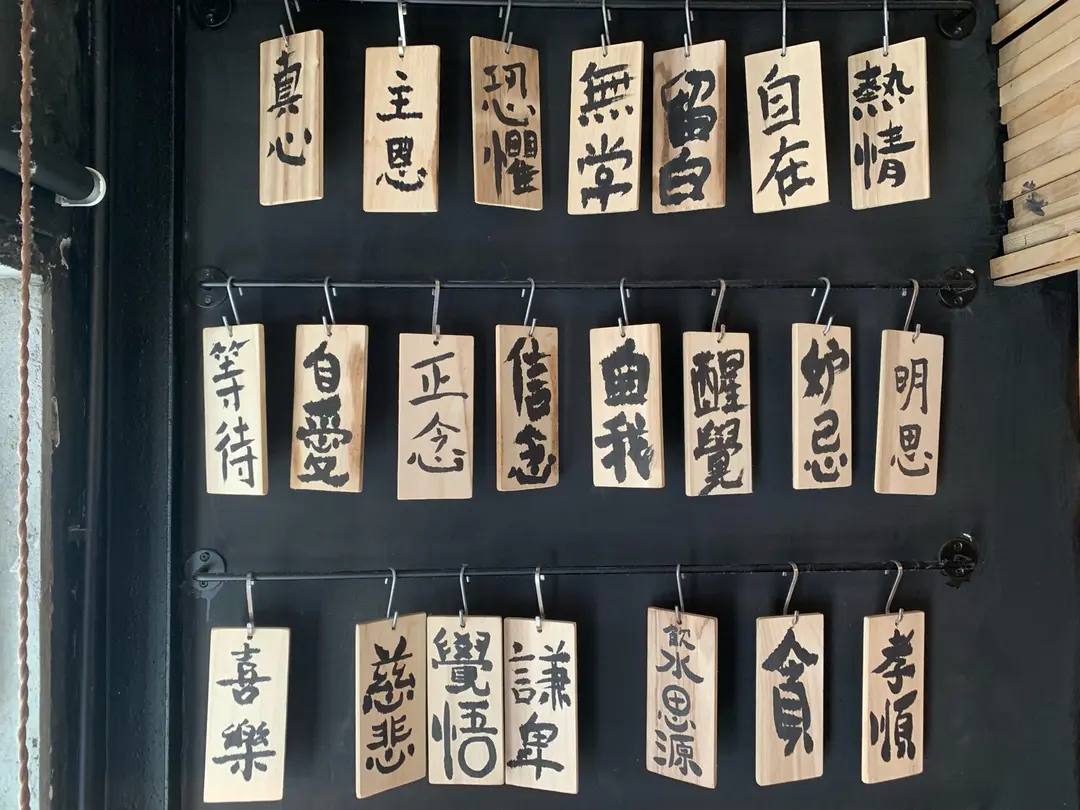 真心
主恩
恐懼
無常
留白
自在
熱情
等待
自愛
正念
信念
我
醒覺
妒忌
明思
喜樂
慈悲
覺悟
謙卑
飲水思源
貪
孝順